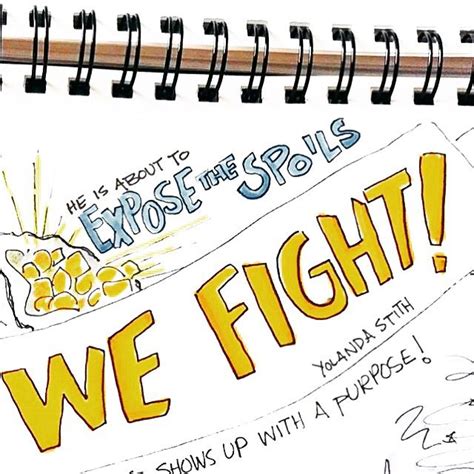 HE IS ABOUT TO
EXPOSE THE SPOILS
WE FIGHT!
YOLANDA STITH
SHOWS UP WITH A PURPOSE!